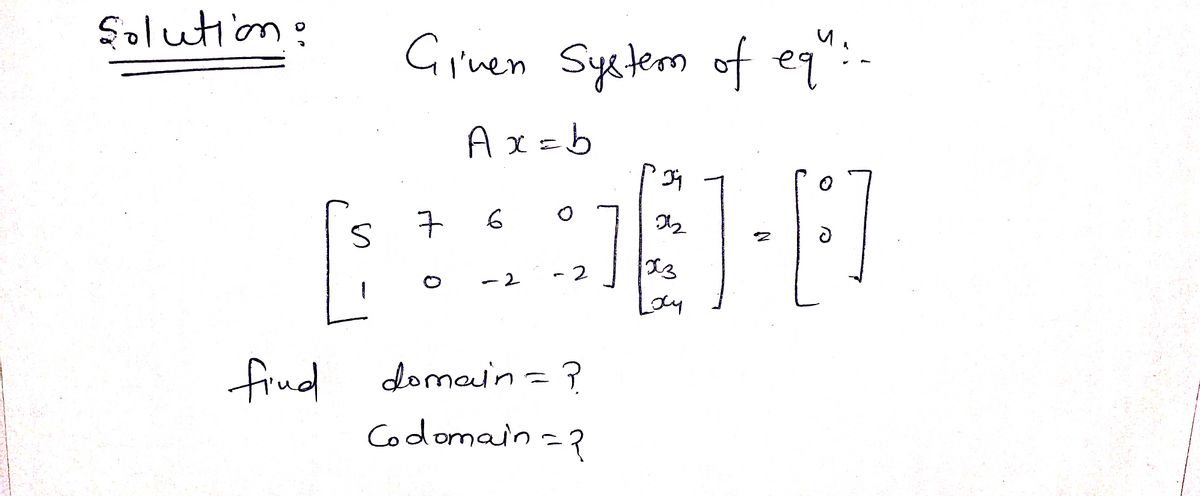 Solution:
Given System of eqⁿ:-
A x = b
[ 5 7 6 0 ] [ x1 ] = [ 0 ]
[ 1 0 -2 -2 ] [ x2 ] [ 0 ]
[ x3 ]
[ x4 ]
find domain = ?
Codomain = ?